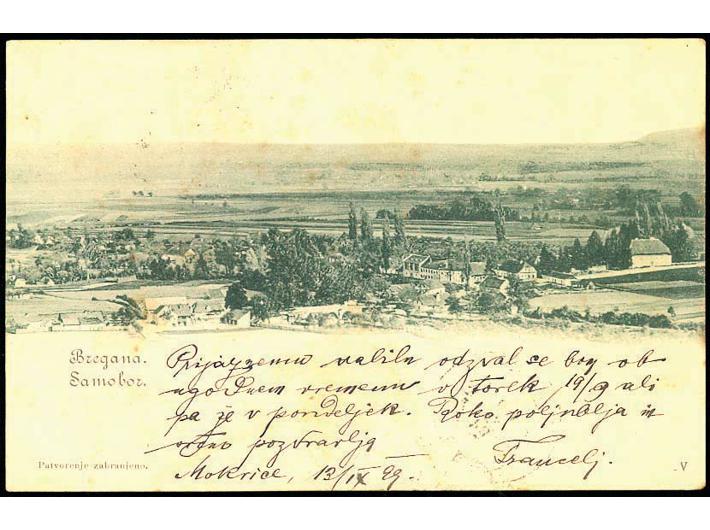 Bregana.
Samobor.
Prijaznemu vabilu odzval se bom ob
ugodnem vremenu v torek 19/9 ali
pa je v pondeljek. Roko poljublja in
vdano pozdravlja
Mokrice, 13/IX 99. Francelj.
Patvorenje zabranjeno.
V